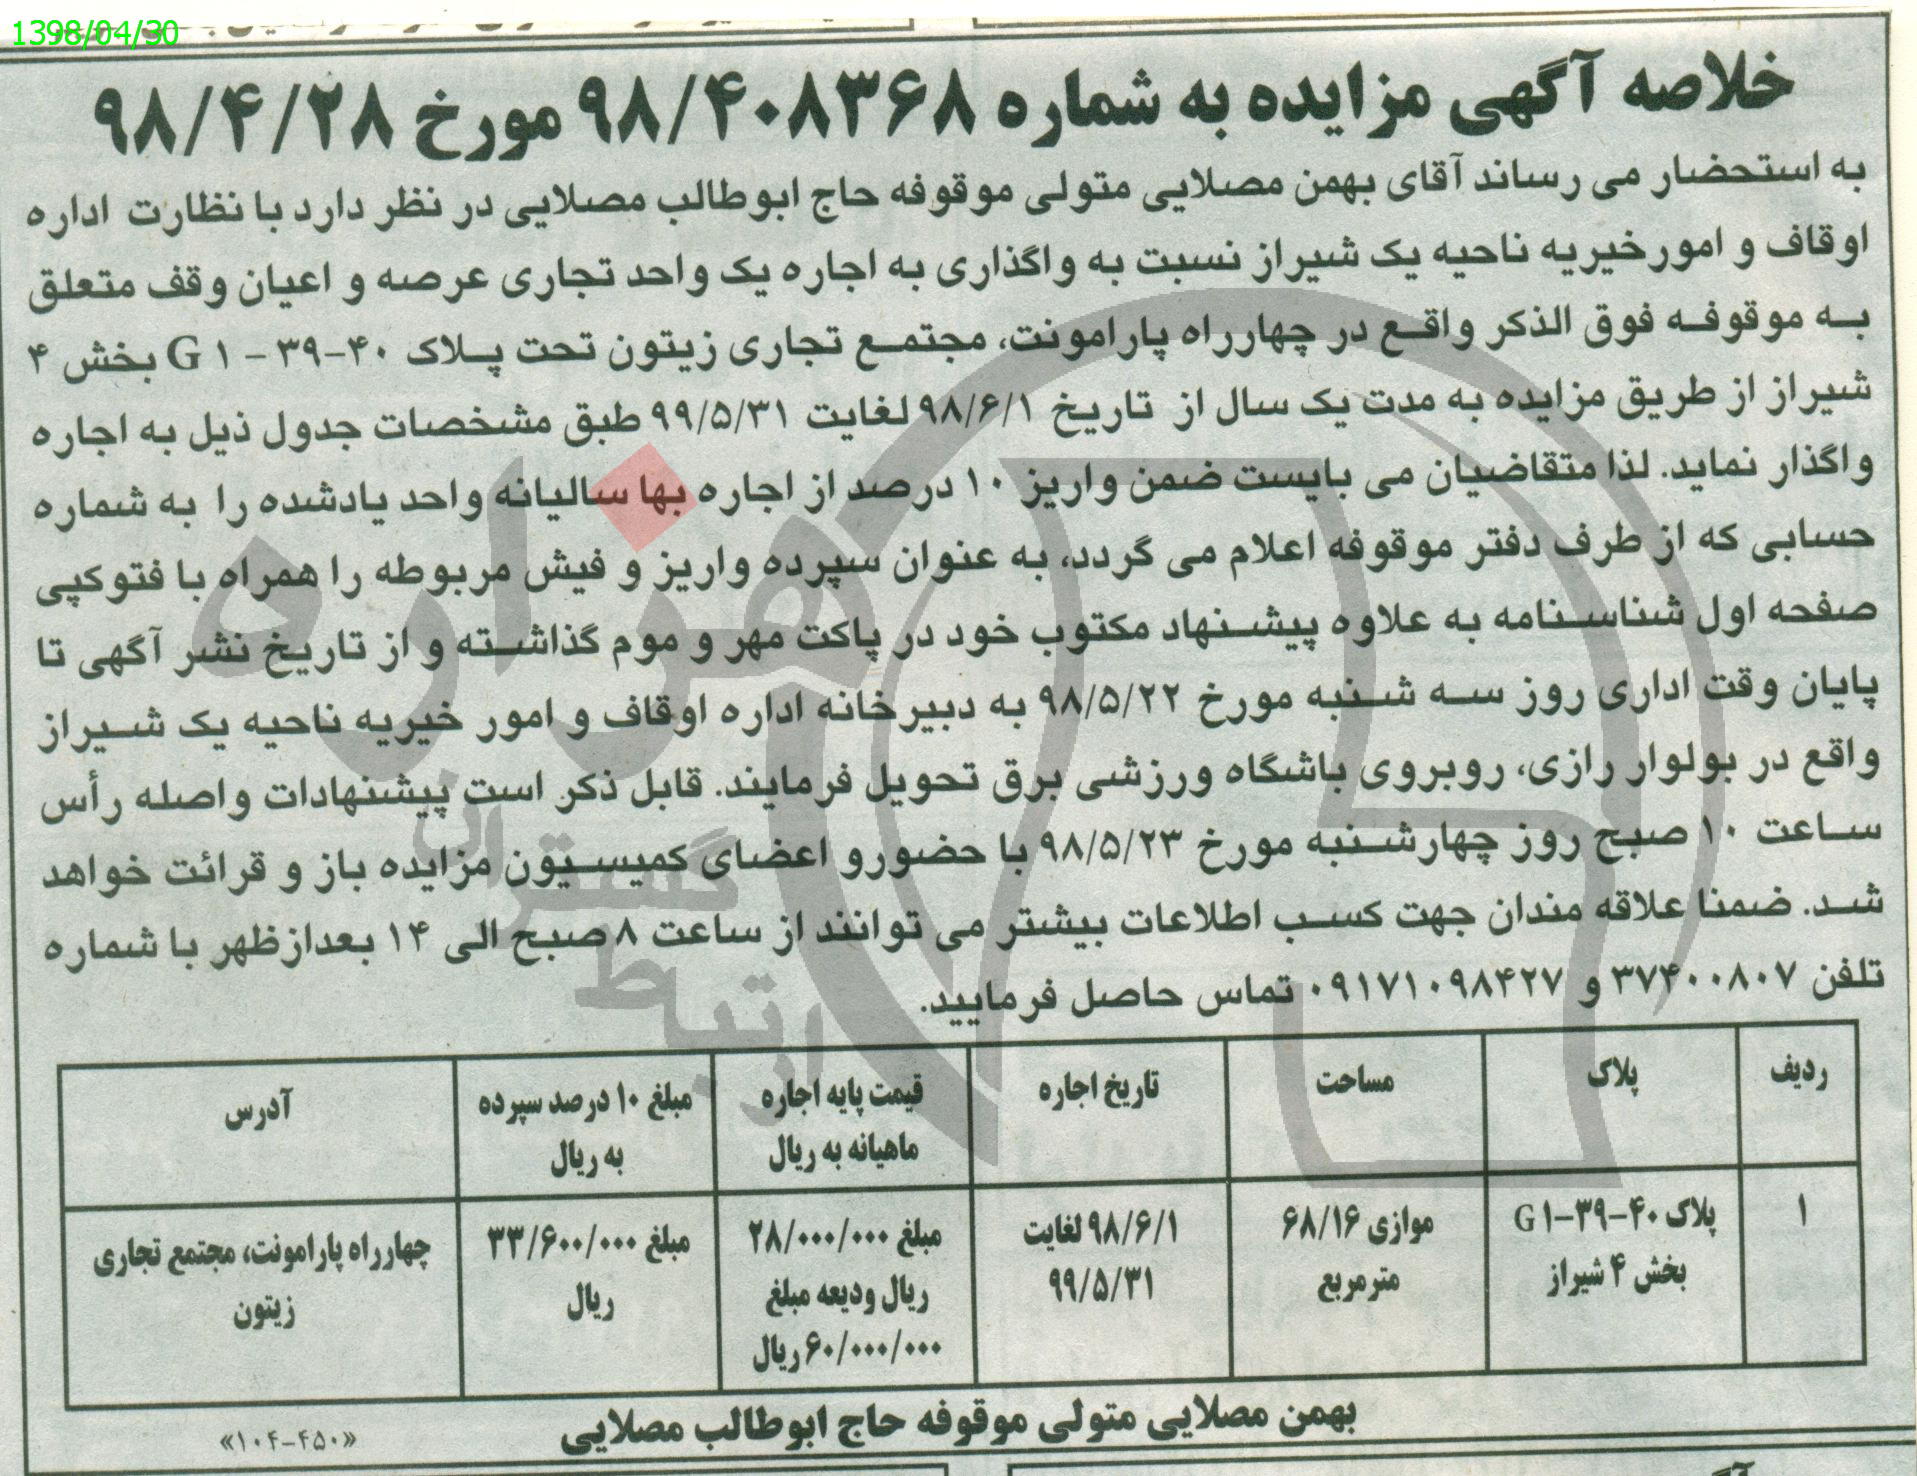 1398/04/30
خلاصه آگهی مزایده به شماره ۹۸/۴۰۸۳۶۸ مورخ ۹۸/۴/۲۸
به استحضار می رساند آقای بهمن مصلایی متولی موقوفه حاج ابوطالب مصلایی در نظر دارد با نظارت اداره
اوقاف و امورخیریه ناحیه یک شیراز نسبت به واگذاری به اجاره یک واحد تجاری عرصه و اعیان وقف متعلق
به موقوفه فوق الذکر واقع در چهارراه پارامونت، مجتمع تجاری زیتون تحت پلاک ۴۰-۳۹ - G ۱ بخش ۴
شیراز از طریق مزایده به مدت یک سال از تاریخ ۹۸/۶/۱ لغایت ۹۹/۵/۳۱ طبق مشخصات جدول ذیل به اجاره
واگذار نماید. لذا متقاضیان می بایست ضمن واریز ۱۰ درصد از اجاره بها سالیانه واحد یادشده را به شماره
حسابی که از طرف دفتر موقوفه اعلام می گردد، به عنوان سپرده واریز و فیش مربوطه را همراه با فتوکپی
صفحه اول شناسنامه به علاوه پیشنهاد مکتوب خود در پاکت مهر و موم گذاشته و از تاریخ نشر آگهی تا
پایان وقت اداری روز سه شنبه مورخ ۹۸/۵/۲۲ به دبیرخانه اداره اوقاف و امور خیریه ناحیه یک شیراز
واقع در بولوار رازی، روبروی باشگاه ورزشی برق تحویل فرمایند. قابل ذکر است پیشنهادات واصله رأس
ساعت ۱۰ صبح روز چهارشنبه مورخ ۹۸/۵/۲۳ با حضورو اعضای کمیسیون مزایده باز و قرائت خواهد
شد. ضمنا علاقه مندان جهت کسب اطلاعات بیشتر می توانند از ساعت ۸ صبح الی ۱۴ بعدازظهر با شماره
تلفن ۳۷۴۰۰۸۰۷ و ۰۹۱۷۱۰۹۸۴۲۷ تماس حاصل فرمایید.
ردیف پلاک مساحت تاریخ اجاره قیمت پایه اجاره ماهیانه به ریال مبلغ ۱۰ درصد سپرده به ریال آدرس
۱ پلاک ۴۰-۳۹-G۱ بخش ۴ شیراز موازی ۶۸/۱۶ مترمربع ۹۸/۶/۱ لغایت ۹۹/۵/۳۱ مبلغ ۲۸/۰۰۰/۰۰۰ ریال ودیعه مبلغ ۶۰/۰۰۰/۰۰۰ ریال مبلغ ۳۳/۶۰۰/۰۰۰ ریال چهارراه پارامونت، مجتمع تجاری زیتون
بهمن مصلایی متولی موقوفه حاج ابوطالب مصلایی
«۱۰۴-۴۵۰»
هزاره
گستران
ارتباط